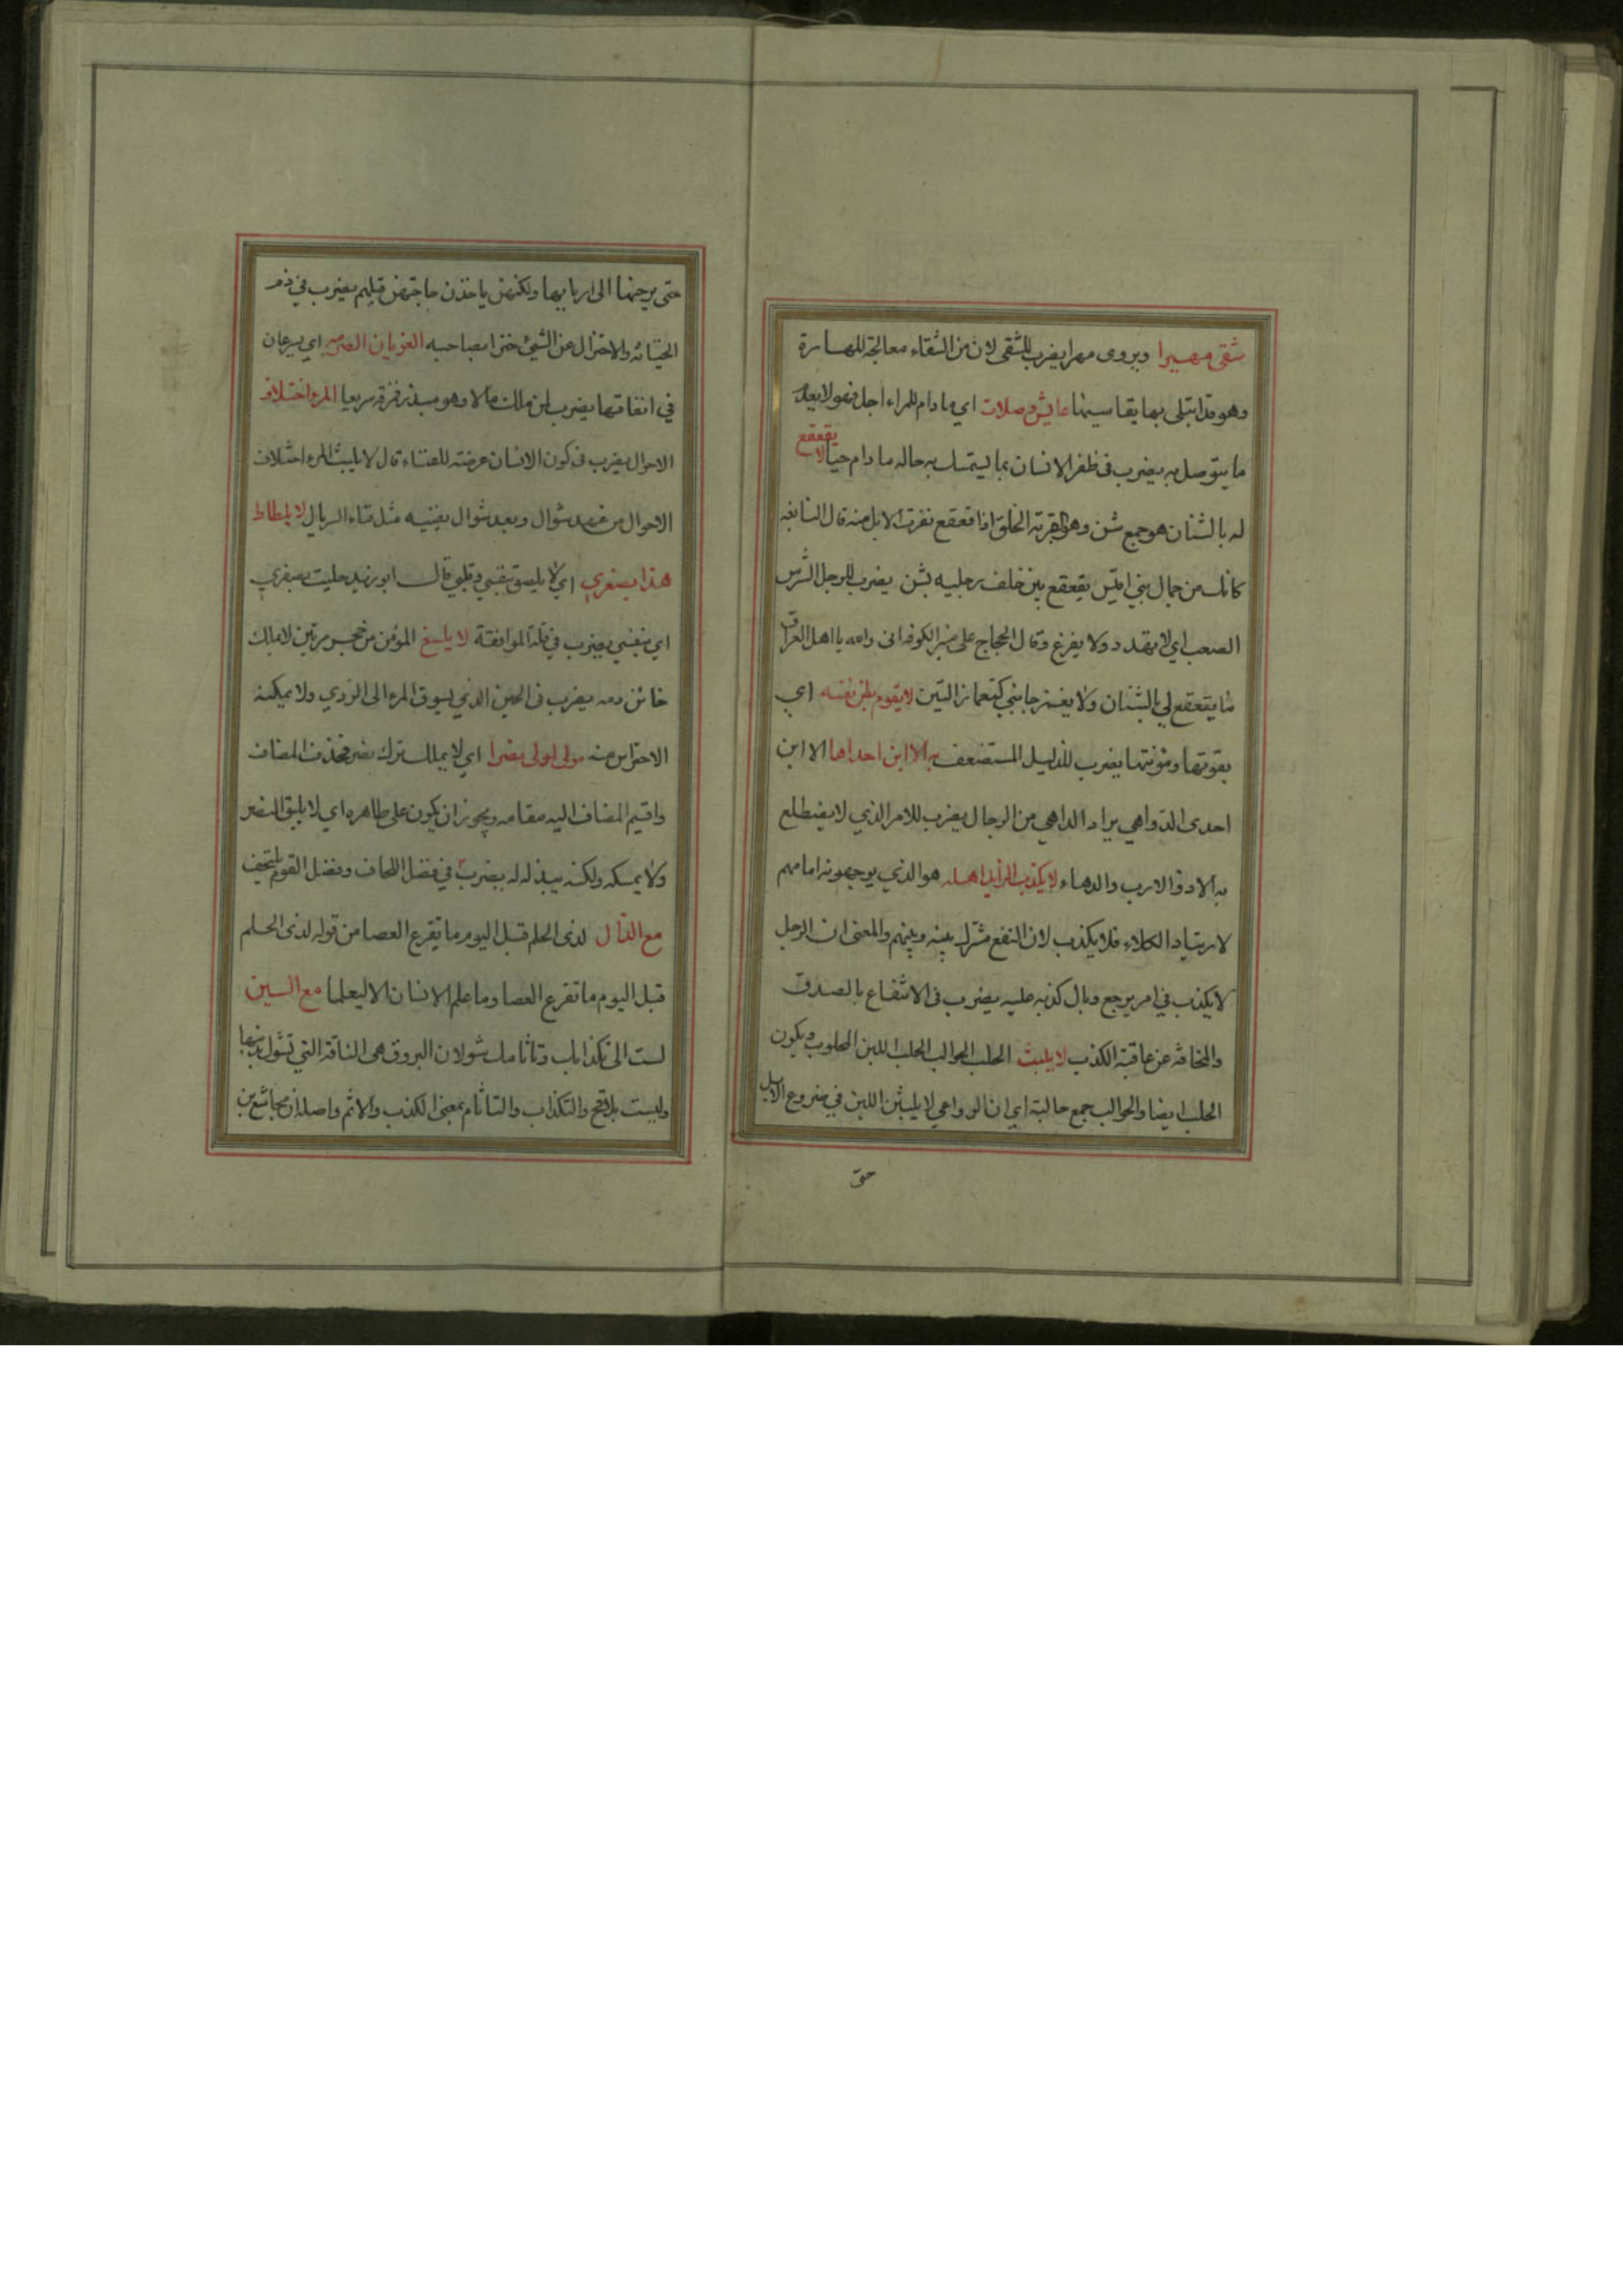 شقى مهيرا ويروى مهرا يضرب للشقى لان من الشقاء معالجة المهارة
وهو قد ابتلى بها يقاسيها عايش وصلات اى ما دام للمراء اجل فهو لا يعدم
ما يتوصل به يضرب فى ظفر الانسان بما ليتمسك به حاله ما دام حيا لا يقعقع
له بالشنان هو جمع شن وهو القربة الخلق اذا قعقع نفرت الابل منه قال النابغه
كانك من جمال بني اقيس يقعقع بين خلف رجليه بشن يضرب للرجل الشرس
الصعب اي لا يهدد ولا يفزع وقال الحجاج على منبر الكوفه انى والله يا اهل العراق
ما يقعقع لي بالشنان ولا يغمز جانبي كتغماز التين لا يقوم بلزنفسه اي
بقوتها ومؤنتها يضرب للذليل المستضعف به الا ابن احداها الا ابن
احدى الدواهي يراد الداهي من الرجال يضرب للامر الذي لا يضطلع
به الا ذو الارب والدهاء لا يكذب الرايد اهله هو الذي يوجهونه امامهم
لارتياد الكلاء فلا يكذب لان النفع مشترك بينه وبينهم والمعنى ان الرجل
لا يكذب في امر يرجع وبال كذبه عليه يضرب فى الانتفاع بالصدق
والمخافه عن عاقبة الكذب لا يلبث الحلب الحوالب الحلب اللبن المحلوب ويكون
الحلب ايضا والحوالب جمع حالبة اي ان الرواعي لا يلبثن اللبن في ضروع الابل
حتى
حتى يرجعنها الى اربابها ولكنهن ياخذن حاجتهن قبلهم يضرب في ذم
الخيانه والاختزال عن الشيئ ختر صاحبه الغويان الصرمه اي يسرعان
في انفاقها يضرب لمن ملك مالا وهو مبذر فرقه سريعا المرء اختلاف
الاحوال يضرب فى كون الانسان عرضة للفناء قال لا يلبث المرء اختلاف
الاحوال من عهد شوال وبعد شوال يفنيه مثل فناء السربال لا يلطاط
هذا بصفري اي لا يلصق بنفسي وقلبي قال ابو زيد حليت بصفري
اي بنفسي يضرب في قلة الموافقة لا يلسغ المؤمن من حجر مرتين لا يملك
خائن دمه يضرب فى الحين الذي يسوق المرء الى الردي ولا يمكنه
الاحتراس منه مولى لمولى نصرا اي لا يملك ترك نصر فحذف المضاف
واقيم المضاف اليه مقامه ويجوز ان يكون على ظاهره اي لا يليق النصر
ولا يمسكه ولكنه يبذله له يضرب في فضل اللحاف وفضل القوم يلتحف
مع الذال لذى الحلم قبل اليوم ما تقرع العصا من قوله لذى الحلم
قبل اليوم ما تقرع العصا وما علم الانسان الا ليعلما مع السين
لست الى تكذابك وتاثامك شولان البروق هى الناقة التي تشول بذنبها
وليست بلاقح والتكذاب والتاثام بمعنى الكذب والاثم واصله ان مجاشع بن